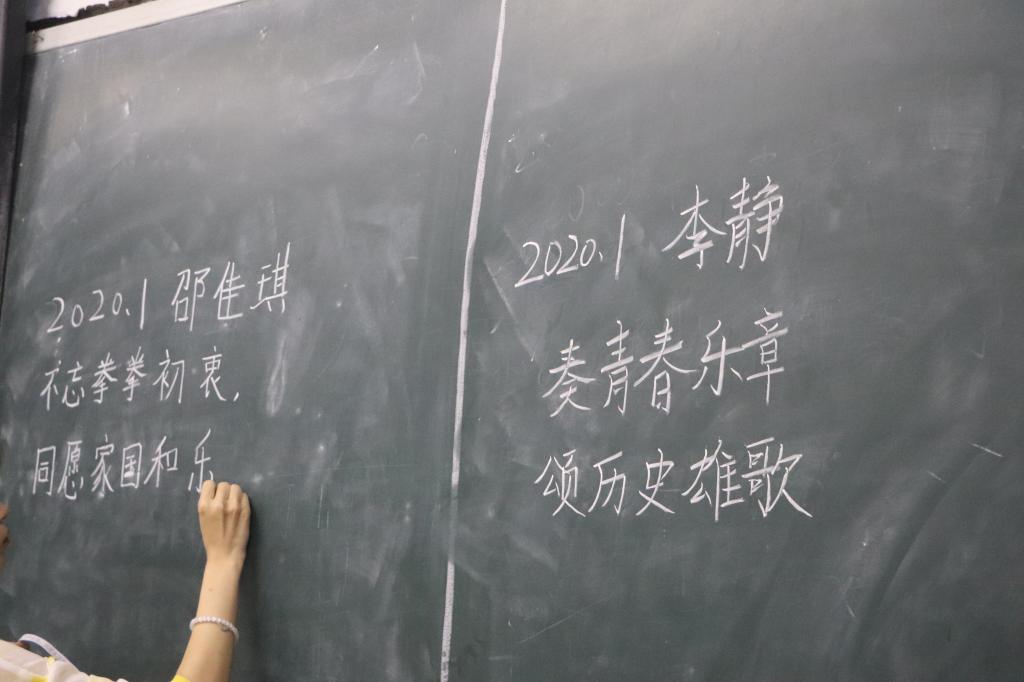 2020.1 邵佳琪
不忘拳拳初衷,
同愿家国和乐
2020.1 李静
奏青春乐章
颂历史雄歌